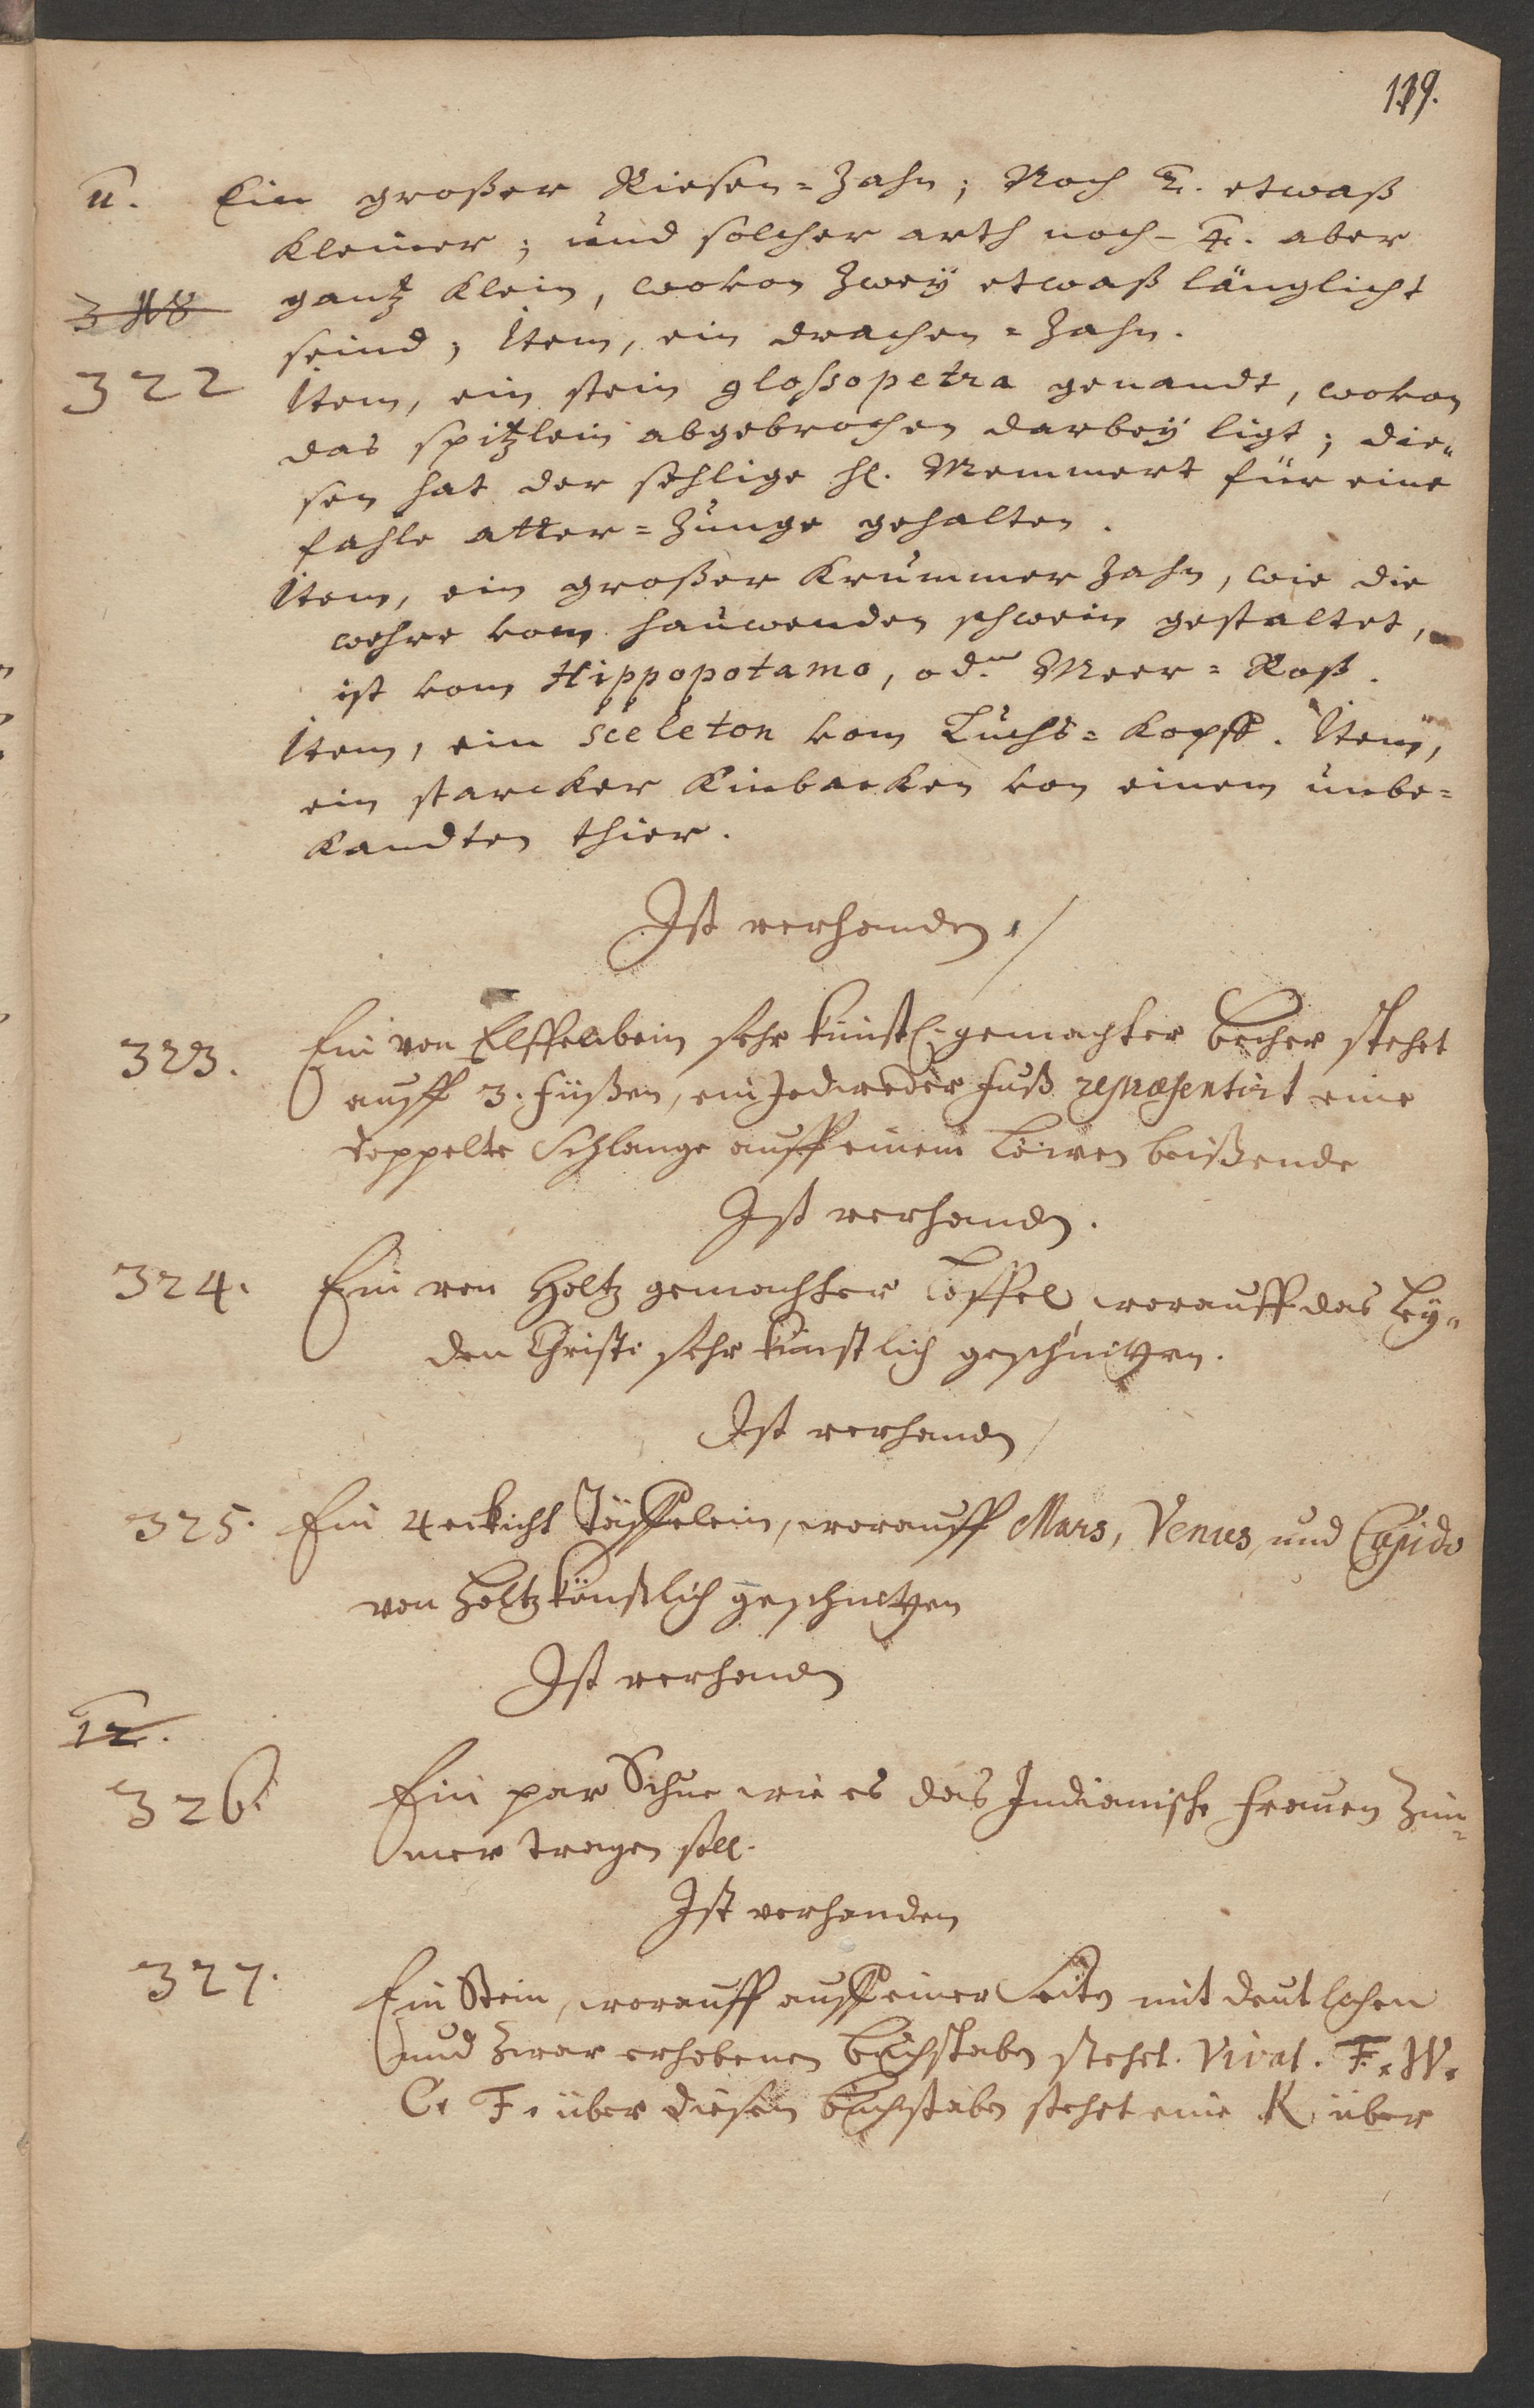 119.
11. Ein großer Riesen-Zahn; Noch 2. etwaß
kleiner; und solcher arth noch 4. aber
ganz klein, wovon Zwey etwaß länglicht
seind; Item, ein drachen-Zahn.
322 Item, ein stein glossopetra genandt, wovon
das spitzlein abgebrochen darbey ligt; die-
sen hat der sehlige H. Memmert für eine
fahle atter-Zunge gehalten.
Item, ein großer krummer Zahn, wie die
wehre vom hauwenden schwein gestaltet,
ist vom Hippopotamo, od. Meer-Roß.
Item, ein sceleton vom Luchs-kopff. Item,
ein starcker Kinbacken von einem unbe-
kandten thier.
Ist verhanden
323. Ein von Elffenbein sehr künstl. gemachter becher stehet
auff 3. füßen, ein Jedweder fuß repræsentirt eine
doppelte Schlange auff einem Löwen beißende
Ist verhanden.
324. Ein von Holtz gemachter Löffel, worauff das Ley-
den Christi sehr künstlich geschnitzen.
Ist verhanden
325. Ein 4eckicht Täffelein, worauff Mars, Venus, und Cupido
von Holtz könstlich geschnitzen
Ist verhanden
12.
326. Ein par Schue wie es das Indianische Frauen Zim-
mer tragen soll.
Ist verhanden
327. Ein Stein, worauff auff einer Seiten mit deutlichen
und zwar erhobenen buchstaben stehet. Vivat. F. W.
C. F. über diesen buchstaben stehet eine K über